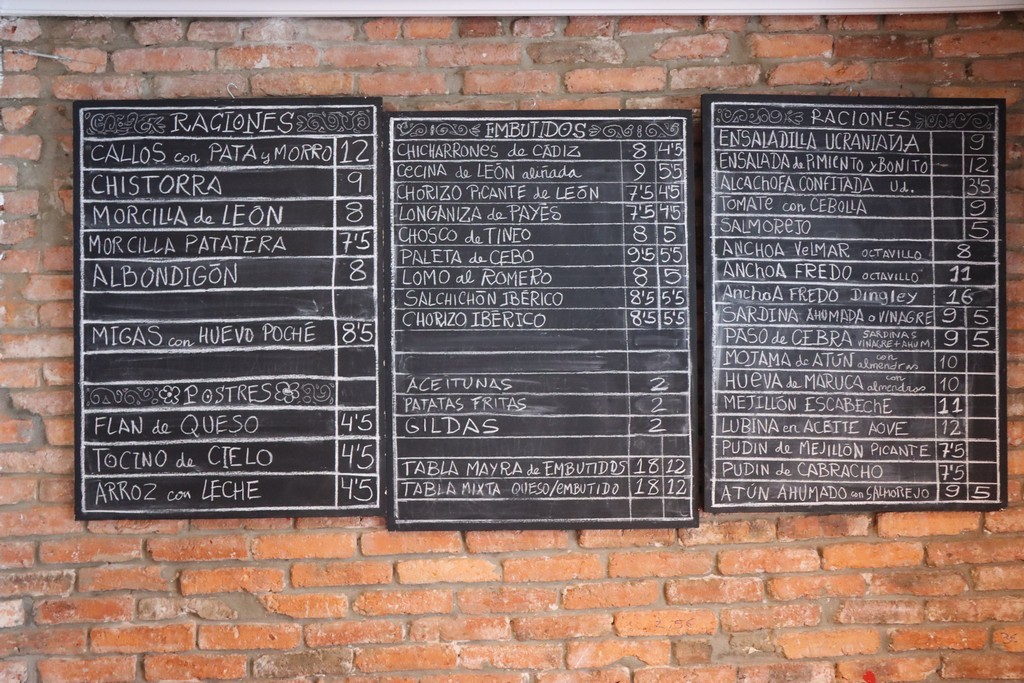 RACIONES
CALLOS con PATA y MORRO 12
CHISTORRA 9
MORCILLA de LEÓN 8
MORCILLA PATATERA 7'5
ALBONDIGÓN 8
MIGAS con HUEVO POCHÉ 8'5
POSTRES
FLAN de QUESO 4'5
TOCINO de CIELO 4'5
ARROZ con LECHE 4'5
EMBUTIDOS
CHICHARRONES de CÁDIZ 8 4'5
CECINA de LEÓN aliñada 9 5'5
CHORIZO PICANTE de LEÓN 7'5 4'5
LONGANIZA de PAYÉS 7'5 4'5
CHOSCO de TINEO 8 5
PALETA de CEBO 9'5 5'5
LOMO al ROMERO 8 5
SALCHICHÓN IBÉRICO 8'5 5'5
CHORIZO IBÉRICO 8'5 5'5
ACEITUNAS 2
PATATAS FRITAS 2
GILDAS 2
TABLA MAYRA de EMBUTIDOS 18 12
TABLA MIXTA QUESO/EMBUTIDO 18 12
RACIONES
ENSALADILLA UCRANIANA 9
ENSALADA de PIMIENTO y BONITO 12
ALCACHOFA CONFITADA Ud. 3'5
TOMATE con CEBOLLA 9
SALMOREJO 5
ANCHOA VELMAR OCTAVILLO 8
ANCHOA FREDO OCTAVILLO 11
ANCHOA FREDO Dingley 16
SARDINA AHUMADA o VINAGRE 9 5
PASO de CEBRA SARDINAS VINAGRE + AHUM. 9 5
MOJAMA de ATÚN con almendras 10
HUEVA de MARUCA con almendras 10
MEJILLÓN ESCABECHE 11
LUBINA en ACEITE AOVE 12
PUDIN de MEJILLÓN PICANTE 7'5
PUDIN de CABRACHO 7'5
ATÚN AHUMADO con SALMOREJO 9 5